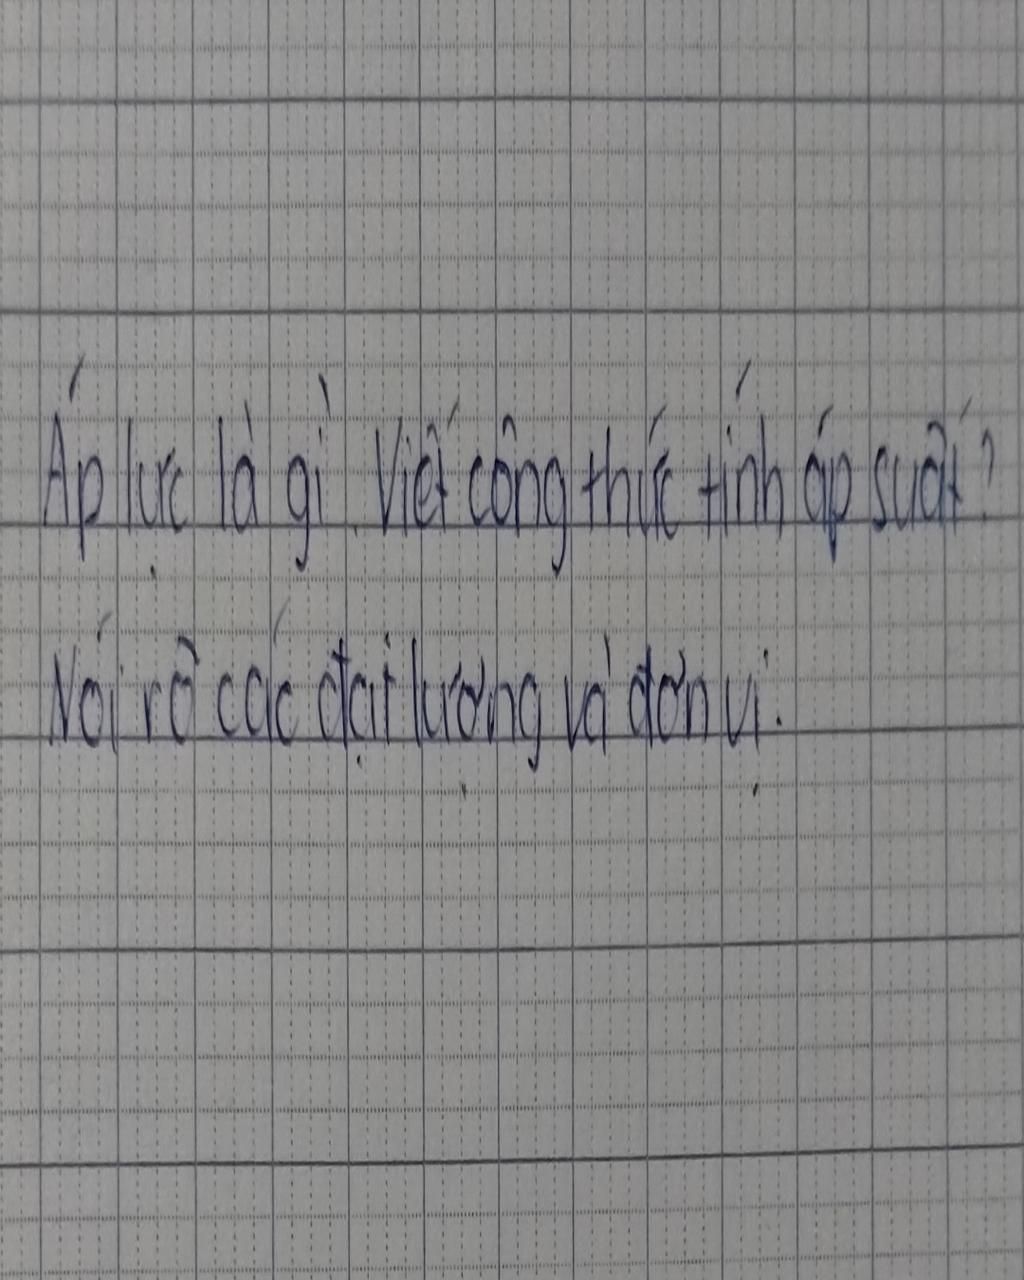 Áp lực là gì. Viết công thức tính áp suất?
Nói rõ các đại lượng và đơn vị.